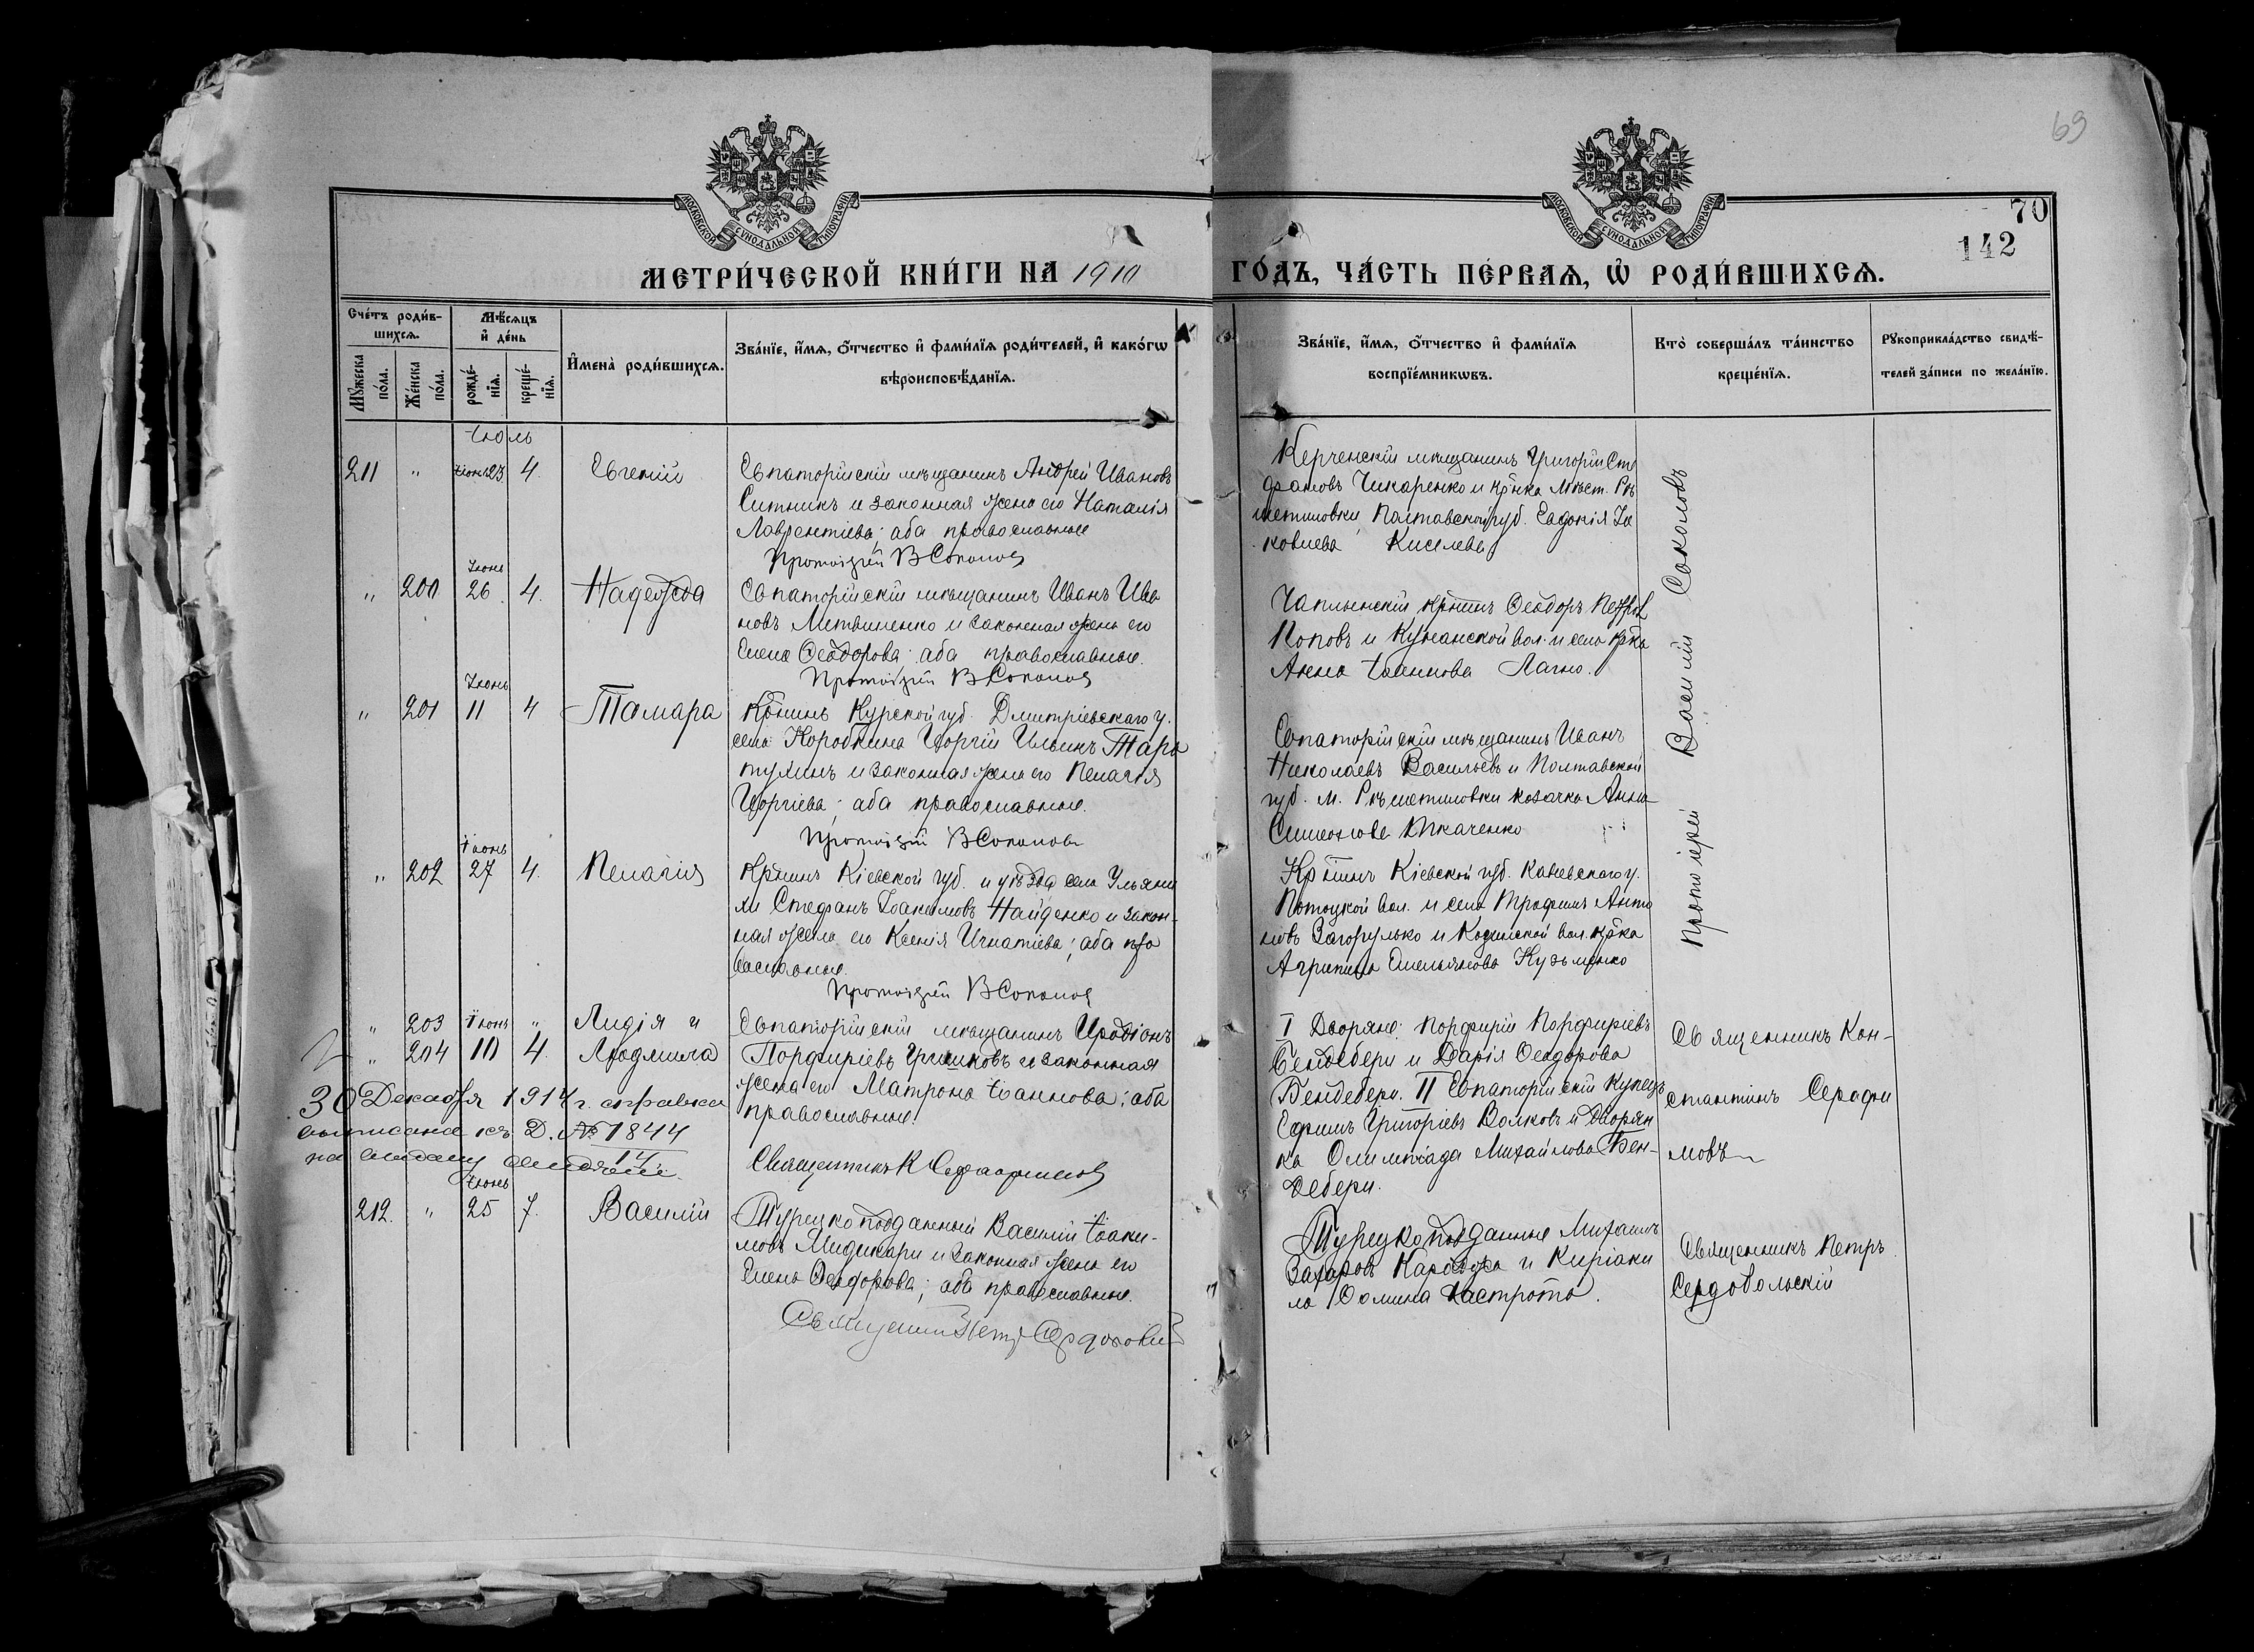 69
70
142
МОСКОВСКОЙ СѴНОДАЛЬНОЙ ТИПОГРАФІИ
МОСКОВСКОЙ СѴНОДАЛЬНОЙ ТИПОГРАФІИ
МЕТРИ́ЧЕСКОЙ КНИ́ГИ НА 1910 ГО́ДЪ, ЧА́СТЬ ПЕ́РВАѦ, Ѡ҆ РОДИ́ВШИХСѦ.
Сче́тъ роди́в-
шихсѧ.
Мꙋ́жеска по́ла.
Же́нска по́ла.
Мѣ́сѧцъ
и҆ де́нь
рожде́-
нїѧ.
креще́-
нїѧ.
И҆мена̀ роди́вшихсѧ.
Зва́нїе, и҆́мѧ, ѻ҆́тчество и҆ фами́лїѧ роди́телей, и҆ како́гѡ
вѣроисповѣ́данїѧ.
Зва́нїе, и҆́мѧ, ѻ҆́тчество и҆ фами́лїѧ
воспрїе́мникѡвъ.
Кто̀ соверша́лъ та́инство
креще́нїѧ.
Рꙋкоприкла́дство свидѣ́-
телей за́писи по жела́нїю.
Іюль
211 " Іюнь 23 4. Евгеній
Евпаторійскій мѣщанинъ Андрей Ивановъ
Ситникъ и законная жена его Наталія
Лаврентіева; оба православные
Протоіерей В Соколов
Керченскій мѣщанинъ Григорій Сте
фановъ Чикаренко и кр-нка мѣст. Рѣ
шетиловки, Полтавской губ. Евдокія Іа
ковлева Киселева
Протоіерей Василій Соколовъ
Іюнь
" 200 26 4. Надежда
Евпаторійскій мѣщанинъ Иванъ Ива
новъ Литвиненко и законная жена его
Елена Ѳеодорова; оба православные.
Протоіерей В Соколов
Чаплынскій кр-нинъ Ѳеодоръ Петров
Поповъ и вол. и села кр-ка
Анна Іоаннова Лагно.
Іюнь
" 201 11 4 Тамара
Кр-нинъ Курской губ. Дмитріевскаго у.
села Коробкина Георгій Ильинъ Тара
тухинъ и законная жена его Пелагія
Георгіева; оба православные.
Протоіерей В Соколовъ
Евпаторійскій мѣщанинъ Иванъ
Николаевъ Васильевъ и Полтавской
губ. м. Рѣшетиловки козачка Анна
Симеонова Ткаченко
Іюнь
" 202 27 4. Пелагія
Кр-нинъ Кіевской губ. и уѣзда села Ульяни
ки Стефанъ Іоакимовъ Найденко и закон-
ная жена его Ксенія Игнатіева; оба пра
вославные.
Протоіерей В Соколов
Кр-нинъ Кіевской губ. Каневскаго у.
Потоцкой вол. и села Трофимъ Анто
новъ Загорулько и вол. кр-ка
Агрипина Емельянова Кузьменко
" 203 Іюнь " Лидія и
" 204 10 4. Людмила
Евпаторійскій мѣщанинъ Иродіонъ
Порфиріевъ Гришковъ и законная
жена его Матрона Іоаннова; оба
православные.
Священникъ К Серафимов
I Дворяне: Порфирій Порфиріевъ
Бендебери и Дарія Ѳеодорова
Бендебери. II Евпаторійскій купецъ
Ефимъ Григоріевъ Волковъ и дворян
ка Олимпіада Михайлова Бен-
дебери.
Священникъ Кон-
стантинъ Серафи
мовъ
30 Декабря 1914 г. справка
выписана къ Д. № 1844
14
Іюнь
212. " 25 7. Василій
Турецкоподданный Василій Іоаки-
мовъ Мидикари и законная жена его
Елена Ѳеодорова; оба православные.
Священникъ Петръ Сердобольскій
Турецкоподданные Михаилъ
Захаровъ и Киріаки
Фомина
Священникъ Петръ
Сердобольскій